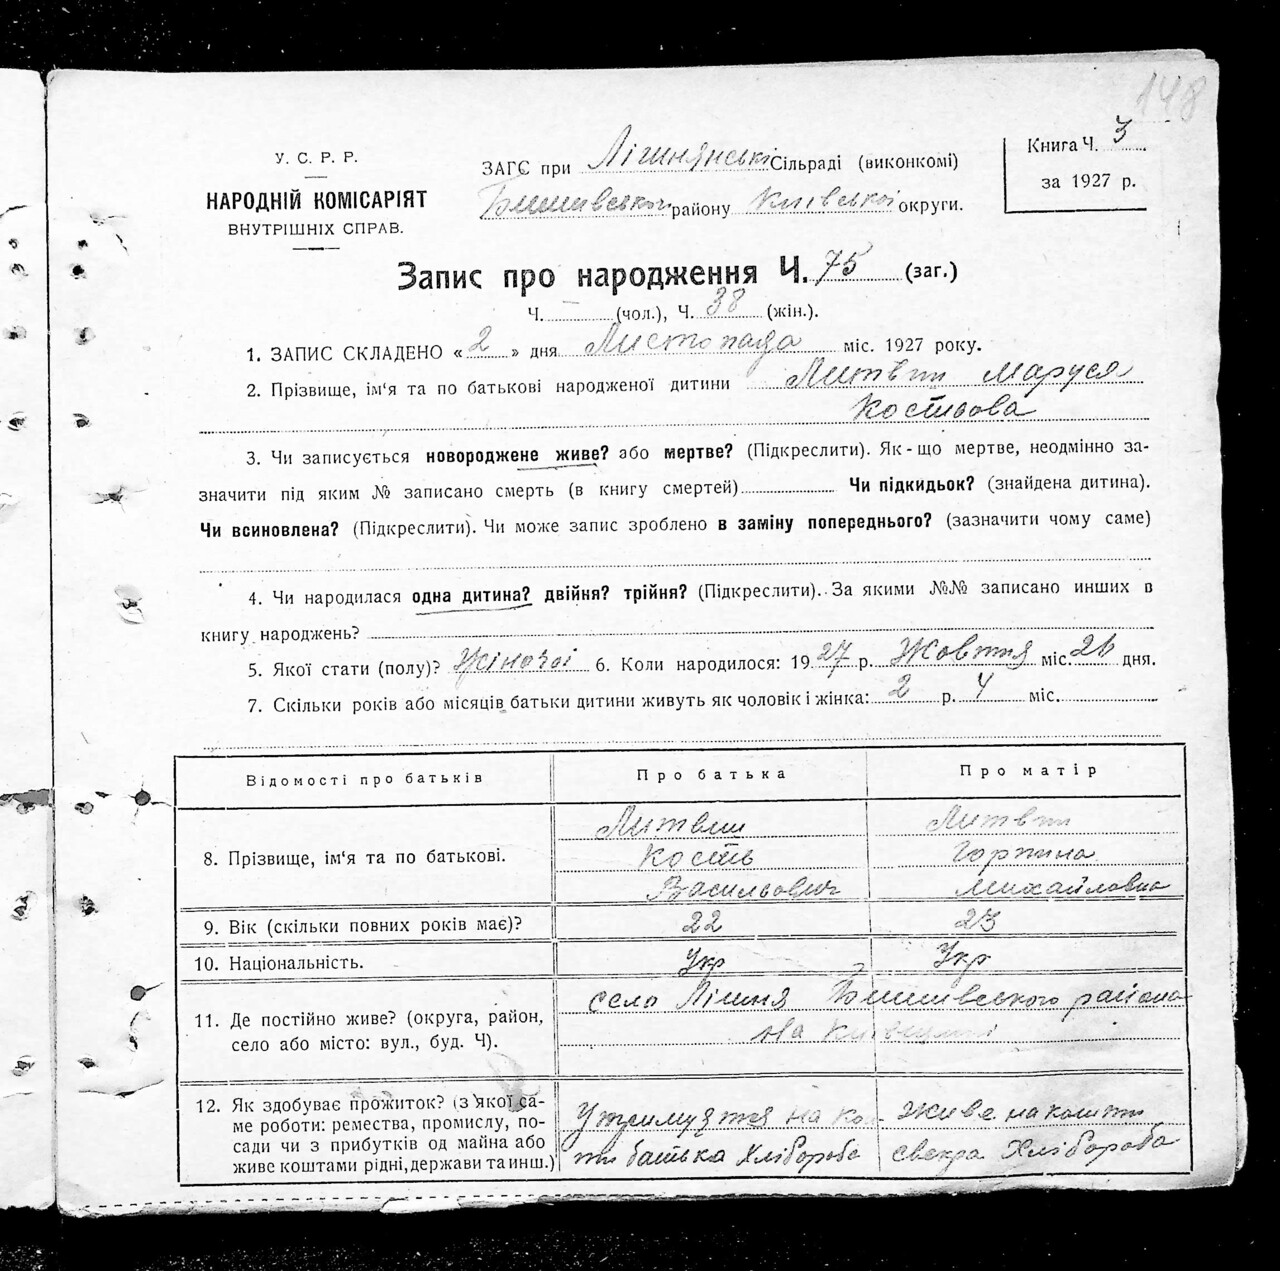 148
У. С. Р. Р.
НАРОДНІЙ КОМІСАРІЯТ
ВНУТРІШНІХ СПРАВ.
ЗАГС при Лішнянські Сільраді (виконкомі)
Бишівського району Київської округи.
Книга Ч. 3
за 1927 р.
Запис про народження Ч. 75 (заг.)
Ч. — (чол.), Ч. 38 (жін.).
1. ЗАПИС СКЛАДЕНО « 2 » дня Листопада міс. 1927 року.
2. Прізвище, ім'я та по батькові народженої дитини Литвин Маруся
Костьова
3. Чи записується новороджене живе? або мертве? (Підкреслити). Як-що мертве, неодмінно за-
значити під яким № записано смерть (в книгу смертей) Чи підкидьок? (знайдена дитина).
Чи всиновлена? (Підкреслити). Чи може запис зроблено в заміну попереднього? (зазначити чому саме)
4. Чи народилася одна дитина? двійня? трійня? (Підкреслити). За якими №№ записано инших в
книгу народжень?
5. Якої стати (полу)? Жіночої 6. Коли народилося: 1927 р. Жовтня міс. 26 дня.
7. Скільки років або місяців батьки дитини живуть як чоловік і жінка: 2 р. 4 міс.
Відомості про батьків Про батька Про матір
8. Прізвище, ім'я та по батькові.
Литвин Литвин
Кость Горпина
Васильович Михайловна
9. Вік (скільки повних років має)? 22 23
10. Національність. Укр Укр
11. Де постійно живе? (округа, район,
село або місто: вул., буд. Ч).
село Лішня Бишівського района
на Київщині
12. Як здобуває прожиток? (з якої са-
ме роботи: ремества, промислу, по-
сади чи з прибутків од майна або
живе коштами рідні, держави та инш.)
Утримуятся на ко- Живе на кошти
ти батька Хлібороба свекра Хлібороба